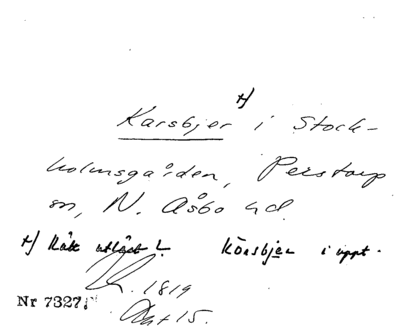 x)
Karsbjer i Stock-
holmsgården, Perstorp
sn, N. Åsbo hd.
x) Rätt utläst? Körsbjer i uppt.
1819
Nr 7327. Akt 15.